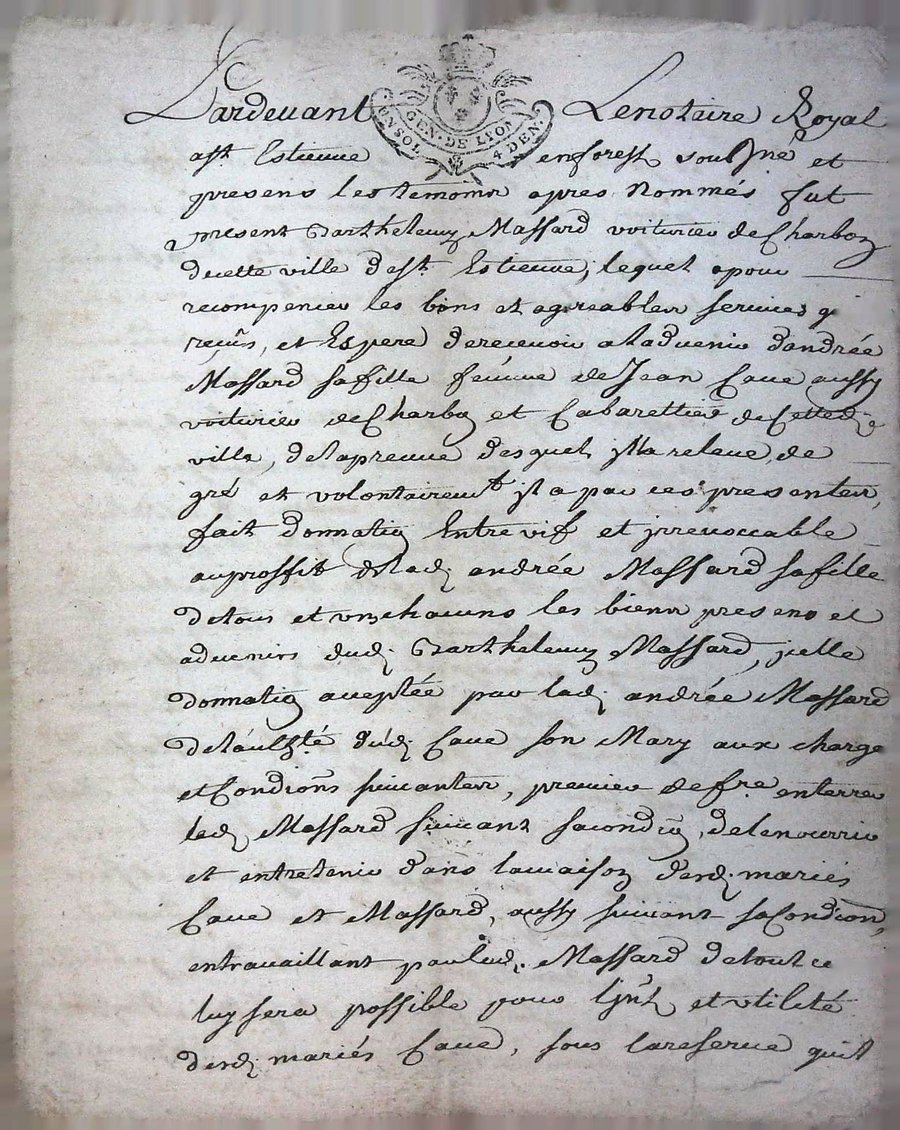 Pardevant Lenotaire Royal
UN SOL GEN. DE LYON 4 DEN.
a st Estienne enforest soussigné et
presens les temoins apres Nommés fut
present Barthelemy Massard voiturier de Charbon
decette ville de st Estienne, lequel pour
recompencer les bons et agreables services q
reçûs, et Espere derecevoir aladvenir dandrée
Massard safille femme de Jean Cave aussy
voiturier de Charbon et Cabarettier de Cette
ville, delapreuve desquels illa releve, de
gré et volontairemt il a par ces presentes,
fait donnation Entre vif et jrrevoccable
auproffit delad. andrée Massard safille
detous et unchacuns les biens presens et
advenirs dud. Barthelemy Massard, jcelle
donnation acceptée par lad. andrée Massard
delauthté dud. Cave son Mary aux charge
et Condions suivantes, premier defre enterrer
led. Massard suivant sacondion, delenourrir
et entretenir dans lamaison desd. mariés
Cave et Massard, aussy suivant saCondion,
entravaillant parled. Massard detout ce
luy sera possible pour l'jnt et utilité
desd. mariés Cave, sous lareserve quil